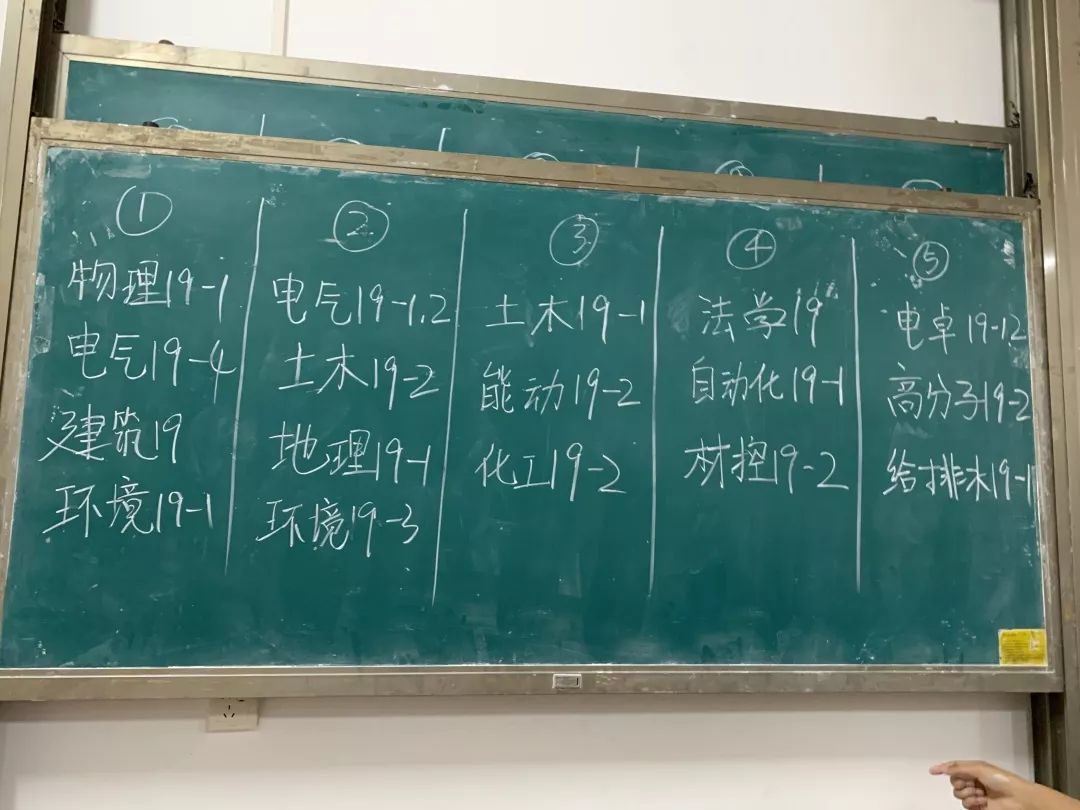 ①
物理19-1
电气19-4
建筑19
环境19-1
②
电气19-1,2
土木19-2
地理19-1
环境19-3
③
土木19-1
能动19-2
化工19-2
④
法学19
自动化19-1
材控19-2
⑤
电卓19-12
高分子19-2
给排水19-1